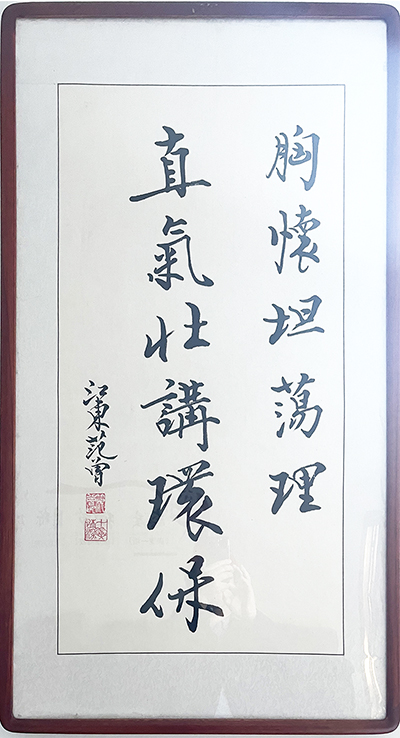 胸懷坦蕩理
直氣壯講環保
江東范曾